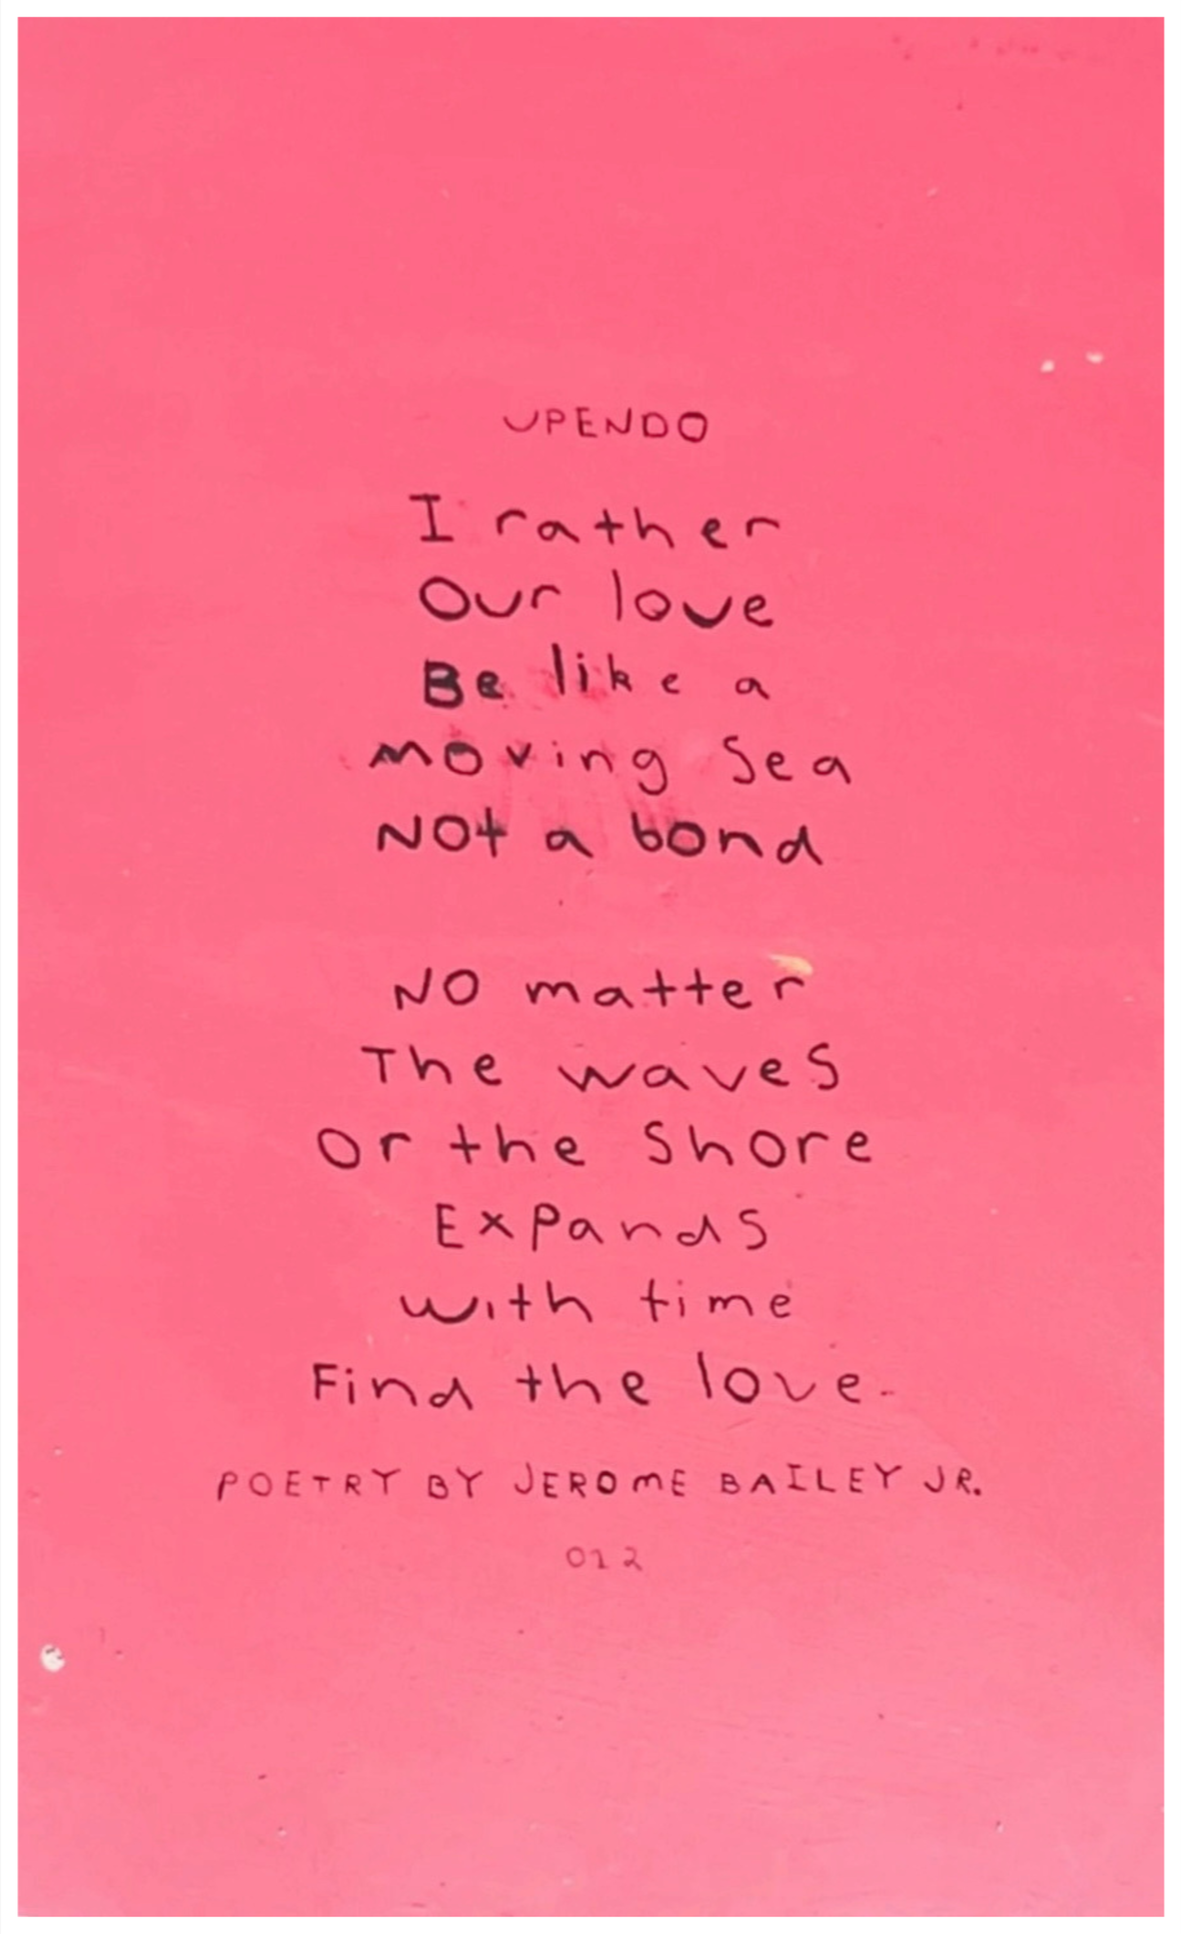 UPENDO
I rather
Our love
Be like a
moving Sea
NOt a bond
NO matter
The waves
Or the Shore
Expands
with time
Find the love.
POETRY BY JEROME BAILEY JR.
012